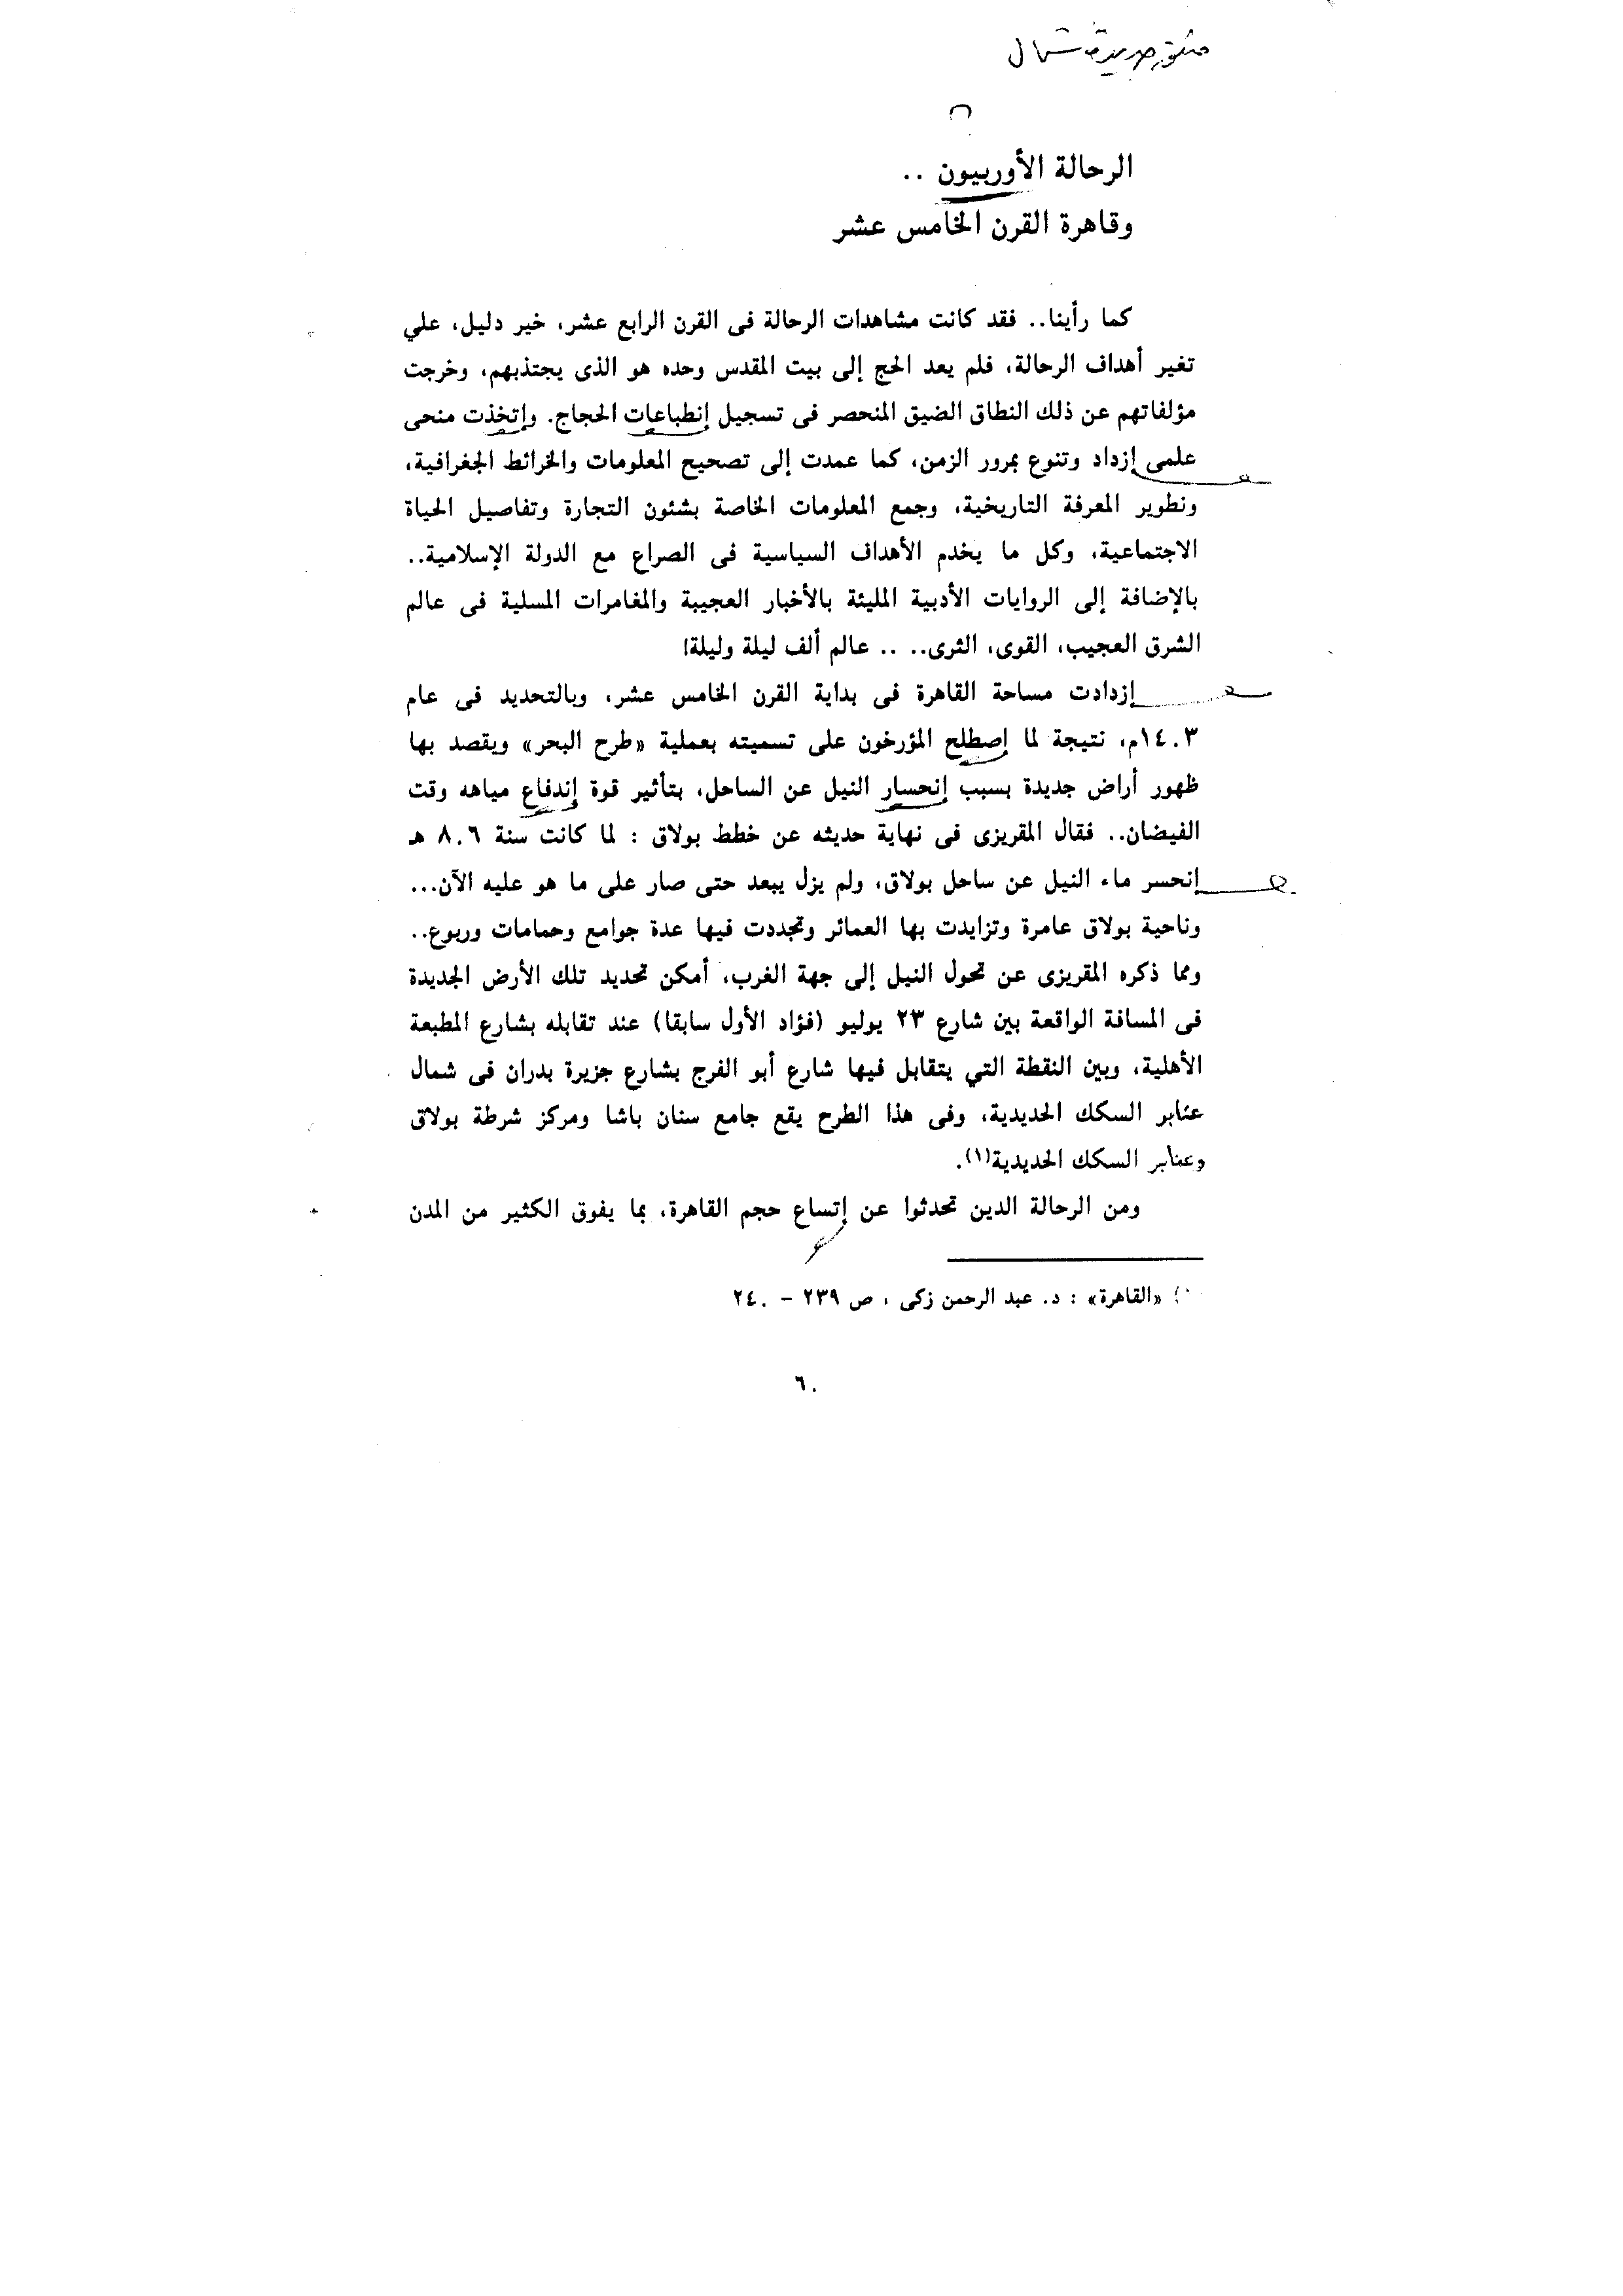 الرحالة الأوربيون ..
وقاهرة القرن الخامس عشر
كما رأينا.. فقد كانت مشاهدات الرحالة فى القرن الرابع عشر، خير دليل، علي
تغير أهداف الرحالة، فلم يعد الحج إلى بيت المقدس وحده هو الذى يجتذبهم، وخرجت
مؤلفاتهم عن ذلك النطاق الضيق المنحصر فى تسجيل إنطباعات الحجاج. وإتخذت منحى
علمى إزداد وتنوع بمرور الزمن، كما عمدت إلى تصحيح المعلومات والخرائط الجغرافية،
وتطوير المعرفة التاريخية، وجمع المعلومات الخاصة بشئون التجارة وتفاصيل الحياة
الاجتماعية، وكل ما يخدم الأهداف السياسية فى الصراع مع الدولة الإسلامية..
بالإضافة إلى الروايات الأدبية المليئة بالأخبار العجيبة والمغامرات المسلية فى عالم
الشرق العجيب، القوى، الثرى.. .. عالم ألف ليلة وليلة!
إزدادت مساحة القاهرة فى بداية القرن الخامس عشر، وبالتحديد فى عام
١٤٠٣م، نتيجة لما إصطلح المؤرخون على تسميته بعملية «طرح البحر» ويقصد بها
ظهور أراض جديدة بسبب إنحسار النيل عن الساحل، بتأثير قوة إندفاع مياهه وقت
الفيضان.. فقال المقريزى فى نهاية حديثه عن خطط بولاق : لما كانت سنة ٨٠٦ هـ
إنحسر ماء النيل عن ساحل بولاق، ولم يزل يبعد حتى صار على ما هو عليه الآن...
وناحية بولاق عامرة وتزايدت بها العمائر وتجددت فيها عدة جوامع وحمامات وربوع..
ومما ذكره المقريزى عن تحول النيل إلى جهة الغرب، أمكن تحديد تلك الأرض الجديدة
فى المسافة الواقعة بين شارع ٢٣ يوليو (فؤاد الأول سابقا) عند تقابله بشارع المطبعة
الأهلية، وبين النقطة التي يتقابل فيها شارع أبو الفرج بشارع جزيرة بدران فى شمال
عنابر السكك الحديدية، وفى هذا الطرح يقع جامع سنان باشا ومركز شرطة بولاق
وعنابر السكك الحديدية(١).
ومن الرحالة الدين تحدثوا عن إتساع حجم القاهرة، بما يفوق الكثير من المدن
(١) «القاهرة» : د. عبد الرحمن زكى ، ص ٢٣٩ - ٢٤٠
٦٠